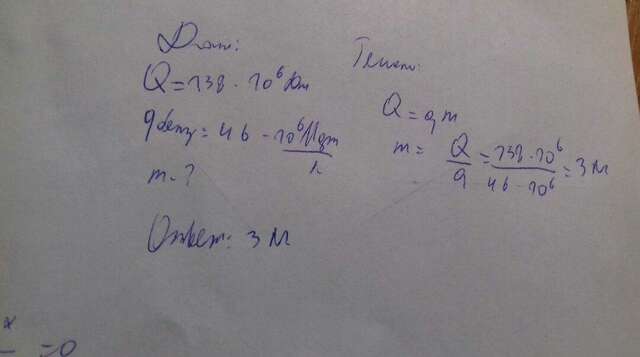 Дано:
Q = 138 · 10⁶ Дж
q бенз = 46 · 10⁶ МДж
m - ?
Ответ: 3 м
Решен:
Q = qm
m = Q/q = 138 · 10⁶ / 46 · 10⁶ = 3 м
x
= 0